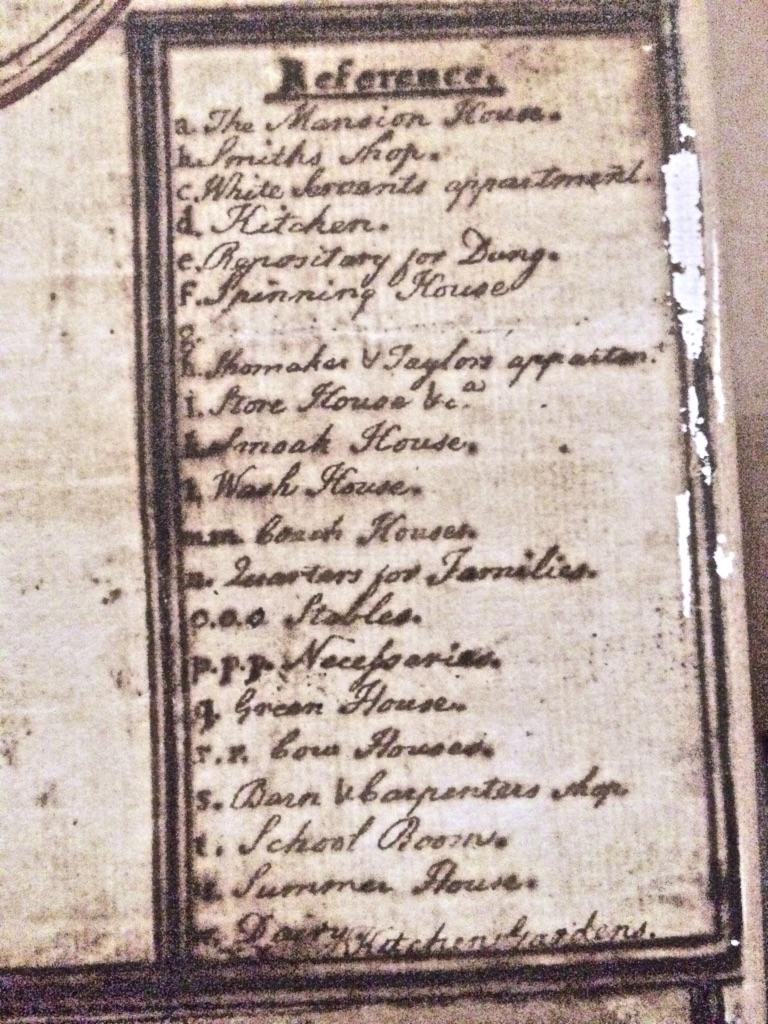 Reference.
a. The Mansion House.
b. Smiths shop.
c. White Servants appartment.
d. Kitchen.
e. Repository for Dung.
f. Spinning House
g.
h. Shomaker & Taylors appartmt.
i. Store House &c.a
k. Smoak House.
l. Wash House.
m.m. Coach Houses.
n. Quarters for Families.
o.o.o Stables.
p.p.p. Necessaries.
q. Green House.
r.r. Cow Houses.
s. Barn & Carpenters shop
t. School Room.
u. Summer House.
w. Dairy x Kitchen Gardens.